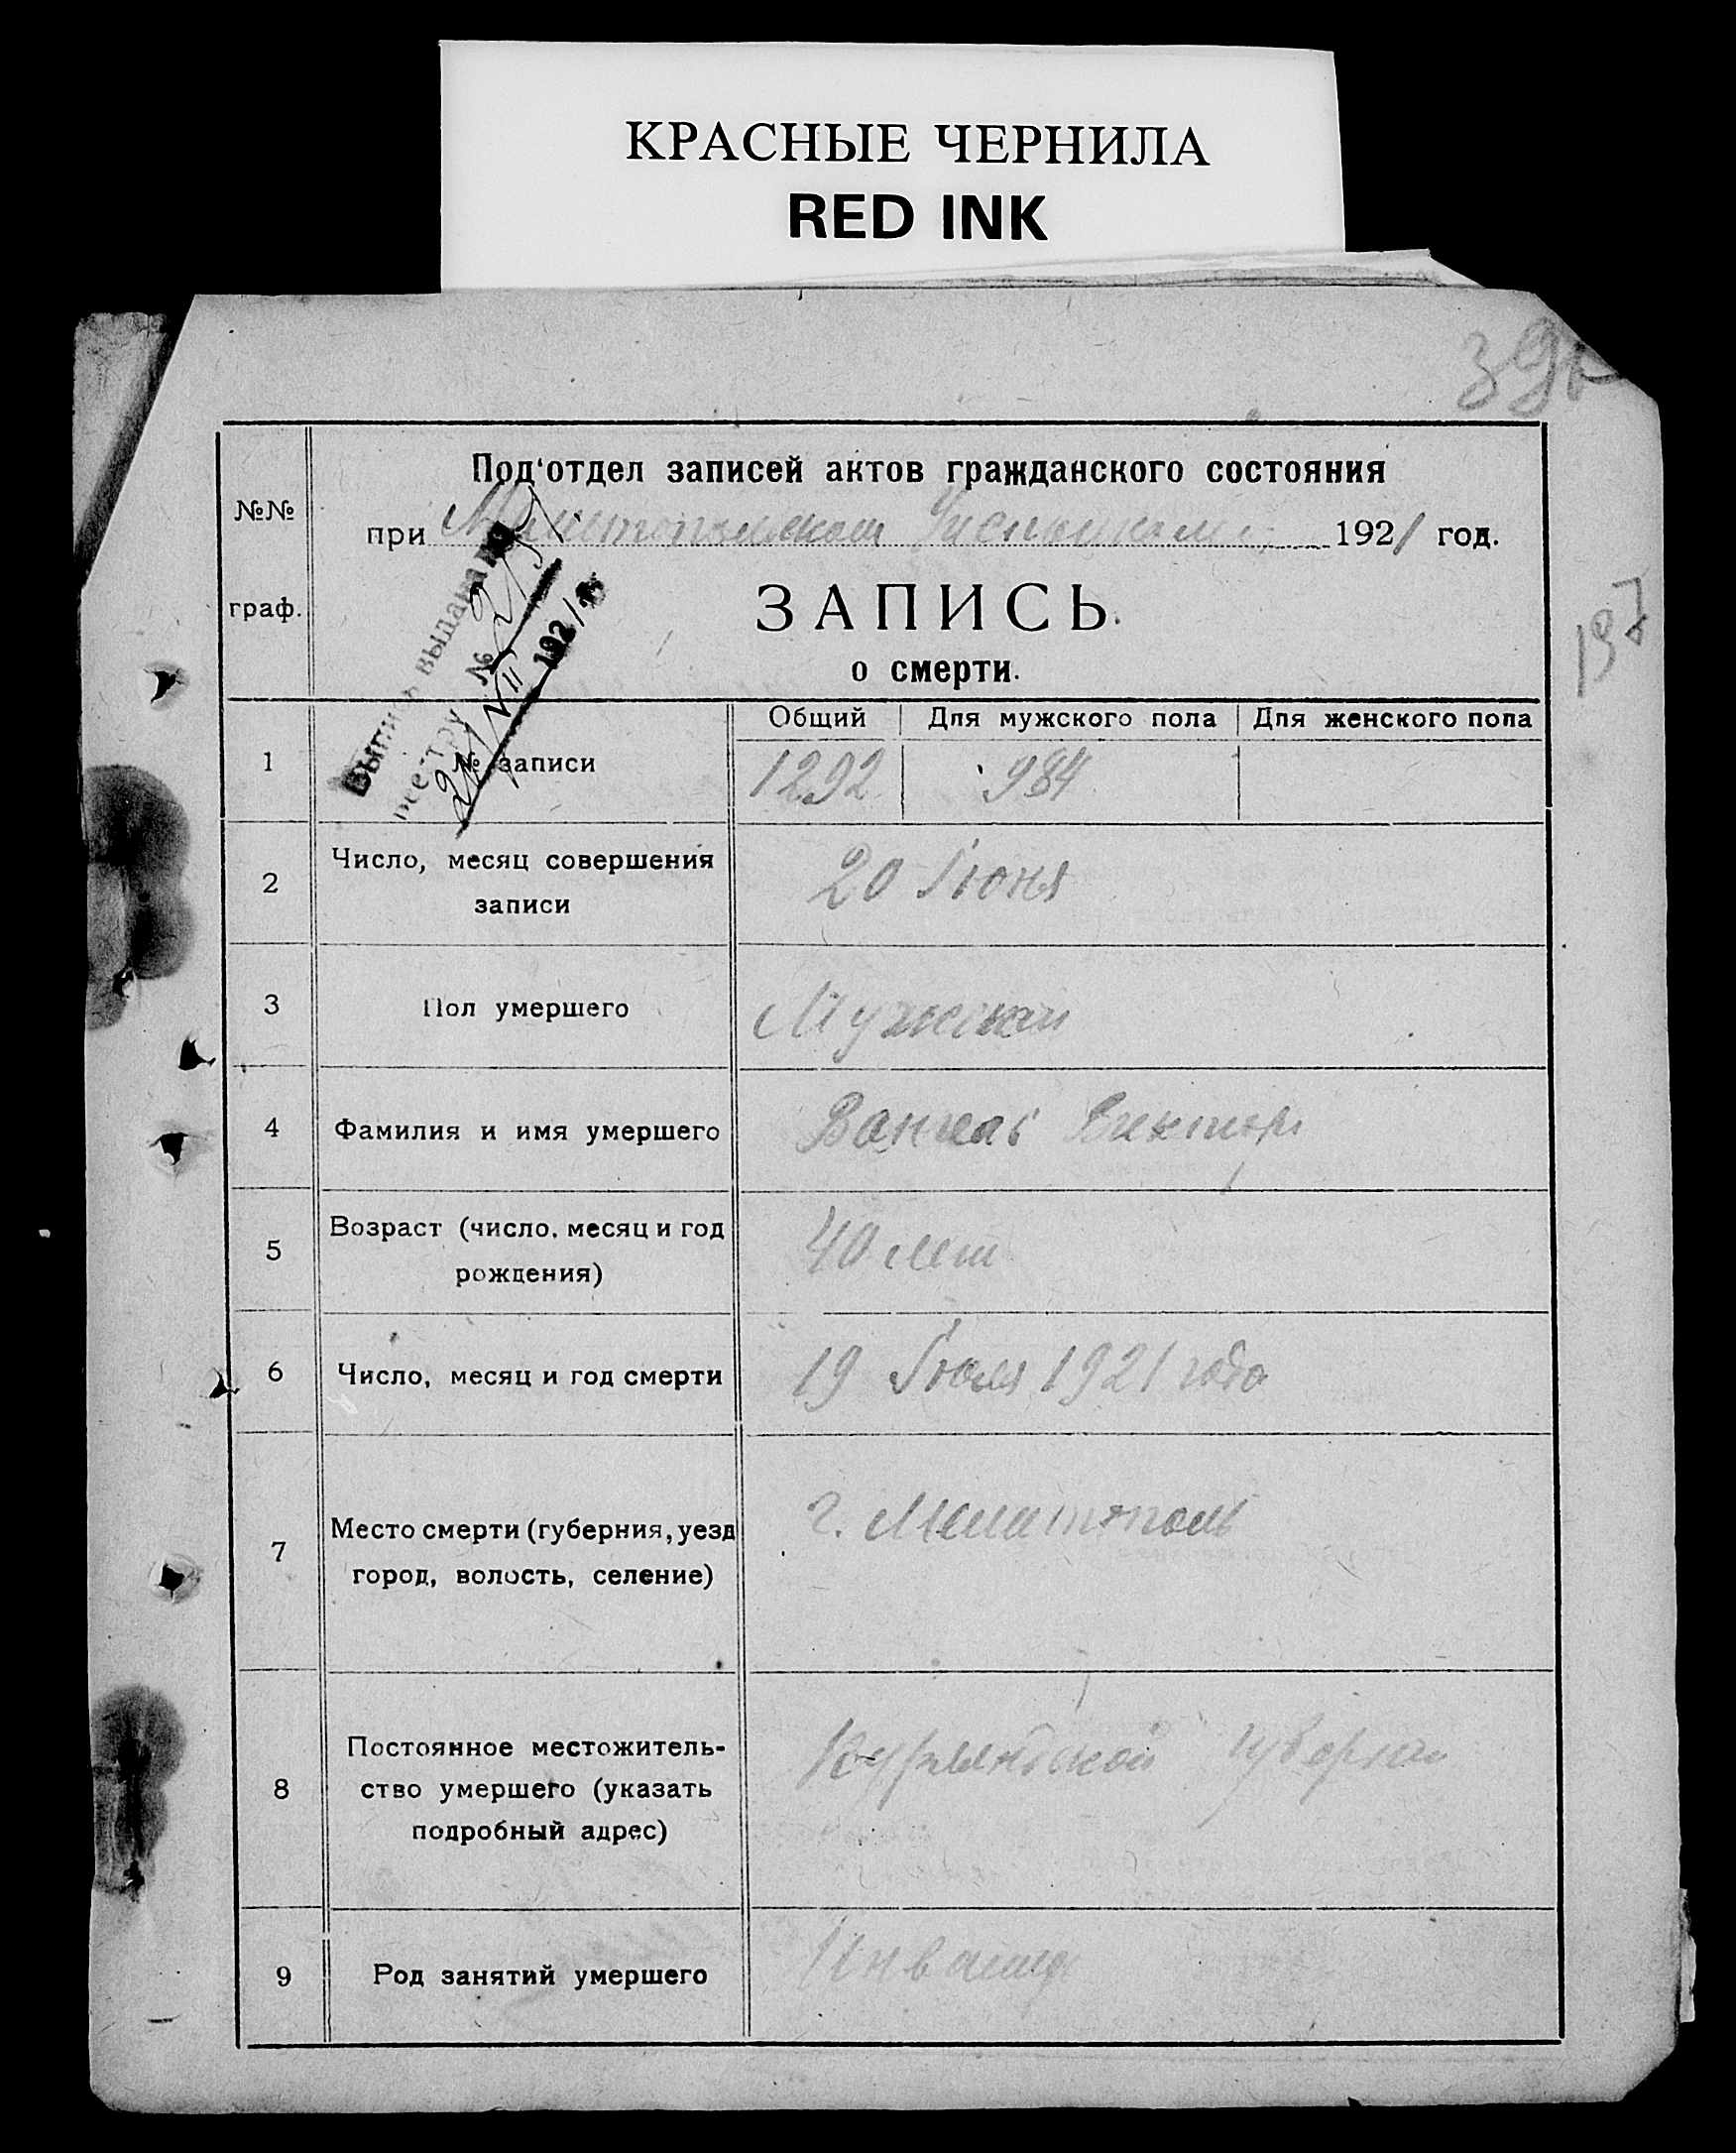 КРАСНЫЕ ЧЕРНИЛА
RED INK
Под'отдел записей актов гражданского состояния
№№ граф.
при Мелитопольском 1921 год.
ЗАПИСЬ
о смерти.
Выпись выдана по
реестру №
192/1
Общий Для мужского пола Для женского пола
1 № записи 1292 984
2 Число, месяц совершения
записи
20 Июня
3 Пол умершего Мужской
4 Фамилия и имя умершего Виктор
5 Возраст (число, месяц и год
рождения)
40 лет
6 Число, месяц и год смерти 19 1921 года
7 Место смерти (губерния, уезд
город, волость, селение)
г. Мелитополь
8 Постоянное местожитель-
ство умершего (указать
подробный адрес)
губернии
9 Род занятий умершего Инвалид
197